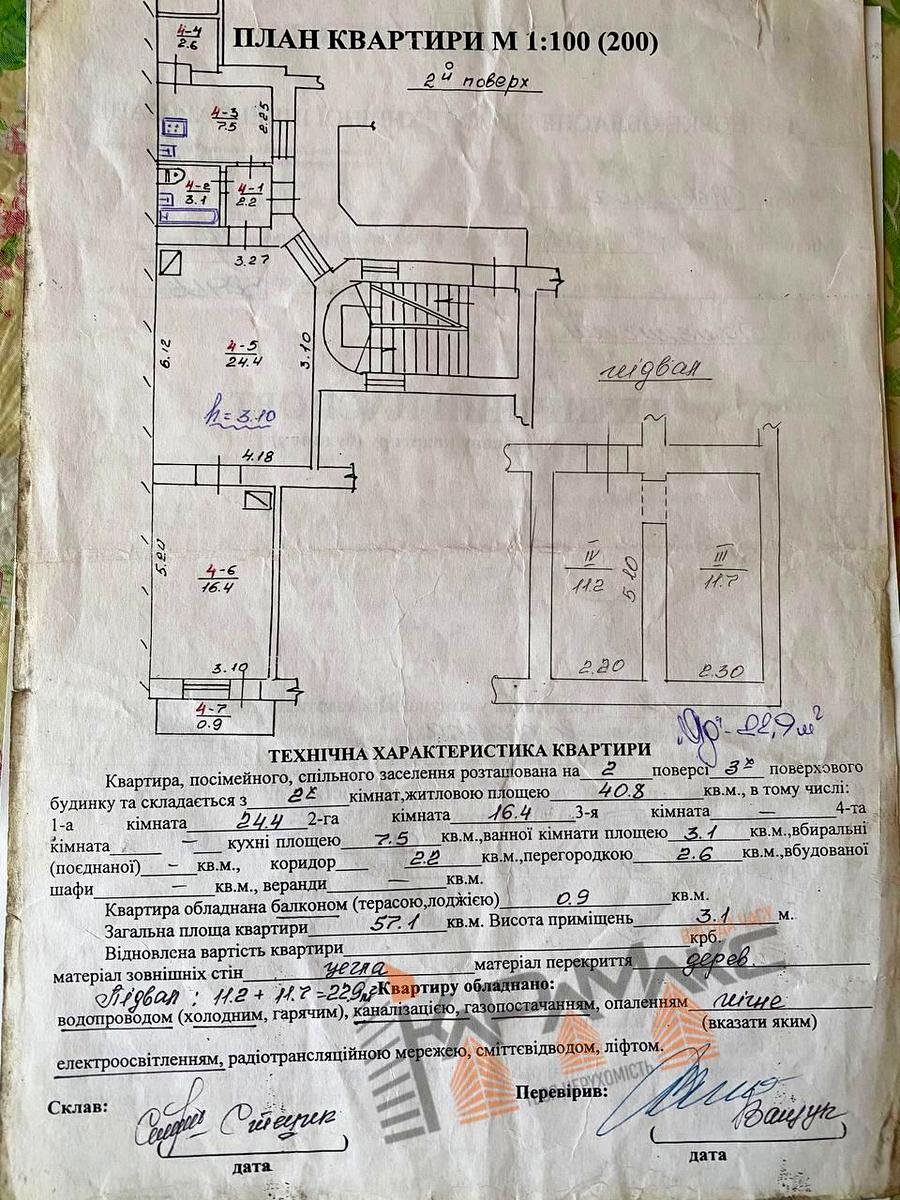 4-4
2.6
ПЛАН КВАРТИРИ М 1:100 (200)
2ой поверх
4-3
7.5
2.25
4-2
3.1
4-1
2.2
3.27
6.12
4-5
24.4
3.10
h = 3.10
4.18
підвал
5.20
4-6
16.4
3.10
4-7
0.9
IV
11.2
5.10
III
11.7
2.20
2.30
"Пд" - 22,9 м²
ТЕХНІЧНА ХАРАКТЕРИСТИКА КВАРТИРИ
Квартира, посімейного, спільного заселення розташована на 2 поверсі 3х поверхового
будинку та складається з 2х кімнат,житловою площею 40.8 кв.м., в тому числі:
1-а кімната 24.4 2-га кімната 16.4 3-я кімната — 4-та
кімната — кухні площею 7.5 кв.м.,ванної кімнати площею 3.1 кв.м.,вбиральні
(поєднаної) — кв.м., коридор 2.2 кв.м.,перегородкою 2.6 кв.м.,вбудованої
шафи — кв.м., веранди — кв.м.
Квартира обладнана балконом (терасою,лоджією) 0.9 кв.м.
Загальна площа квартири 57.1 кв.м. Висота приміщень 3.1 м.
Відновлена вартість квартири крб.
матеріал зовнішніх стін цегла матеріал перекриття дерев.
Підвал : 11.2 + 11.7 = 22.9 м² Квартиру обладнано:
водопроводом (холодним, гарячим), каналізацією, газопостачанням, опаленням пічне
(вказати яким)
електроосвітленням, радіотрансляційною мережею, сміттєвідводом, ліфтом.
КАРАМАКС
ТВОЯ НЕРУХОМІСТЬ
Склав: Перевірив:
Ващук
дата дата